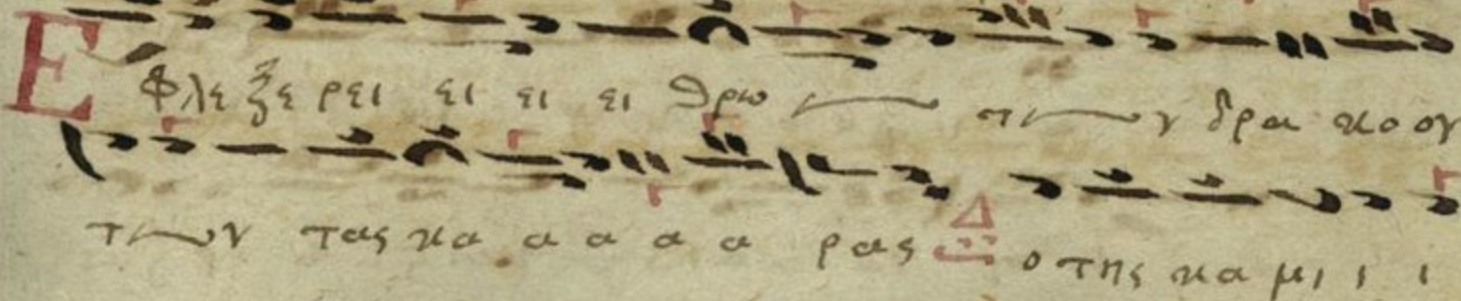 Εφλεξερει ει ει ει θρω των δρα κο ον
των τας κα α α α α ρας Δ ο της κα μι ι ι